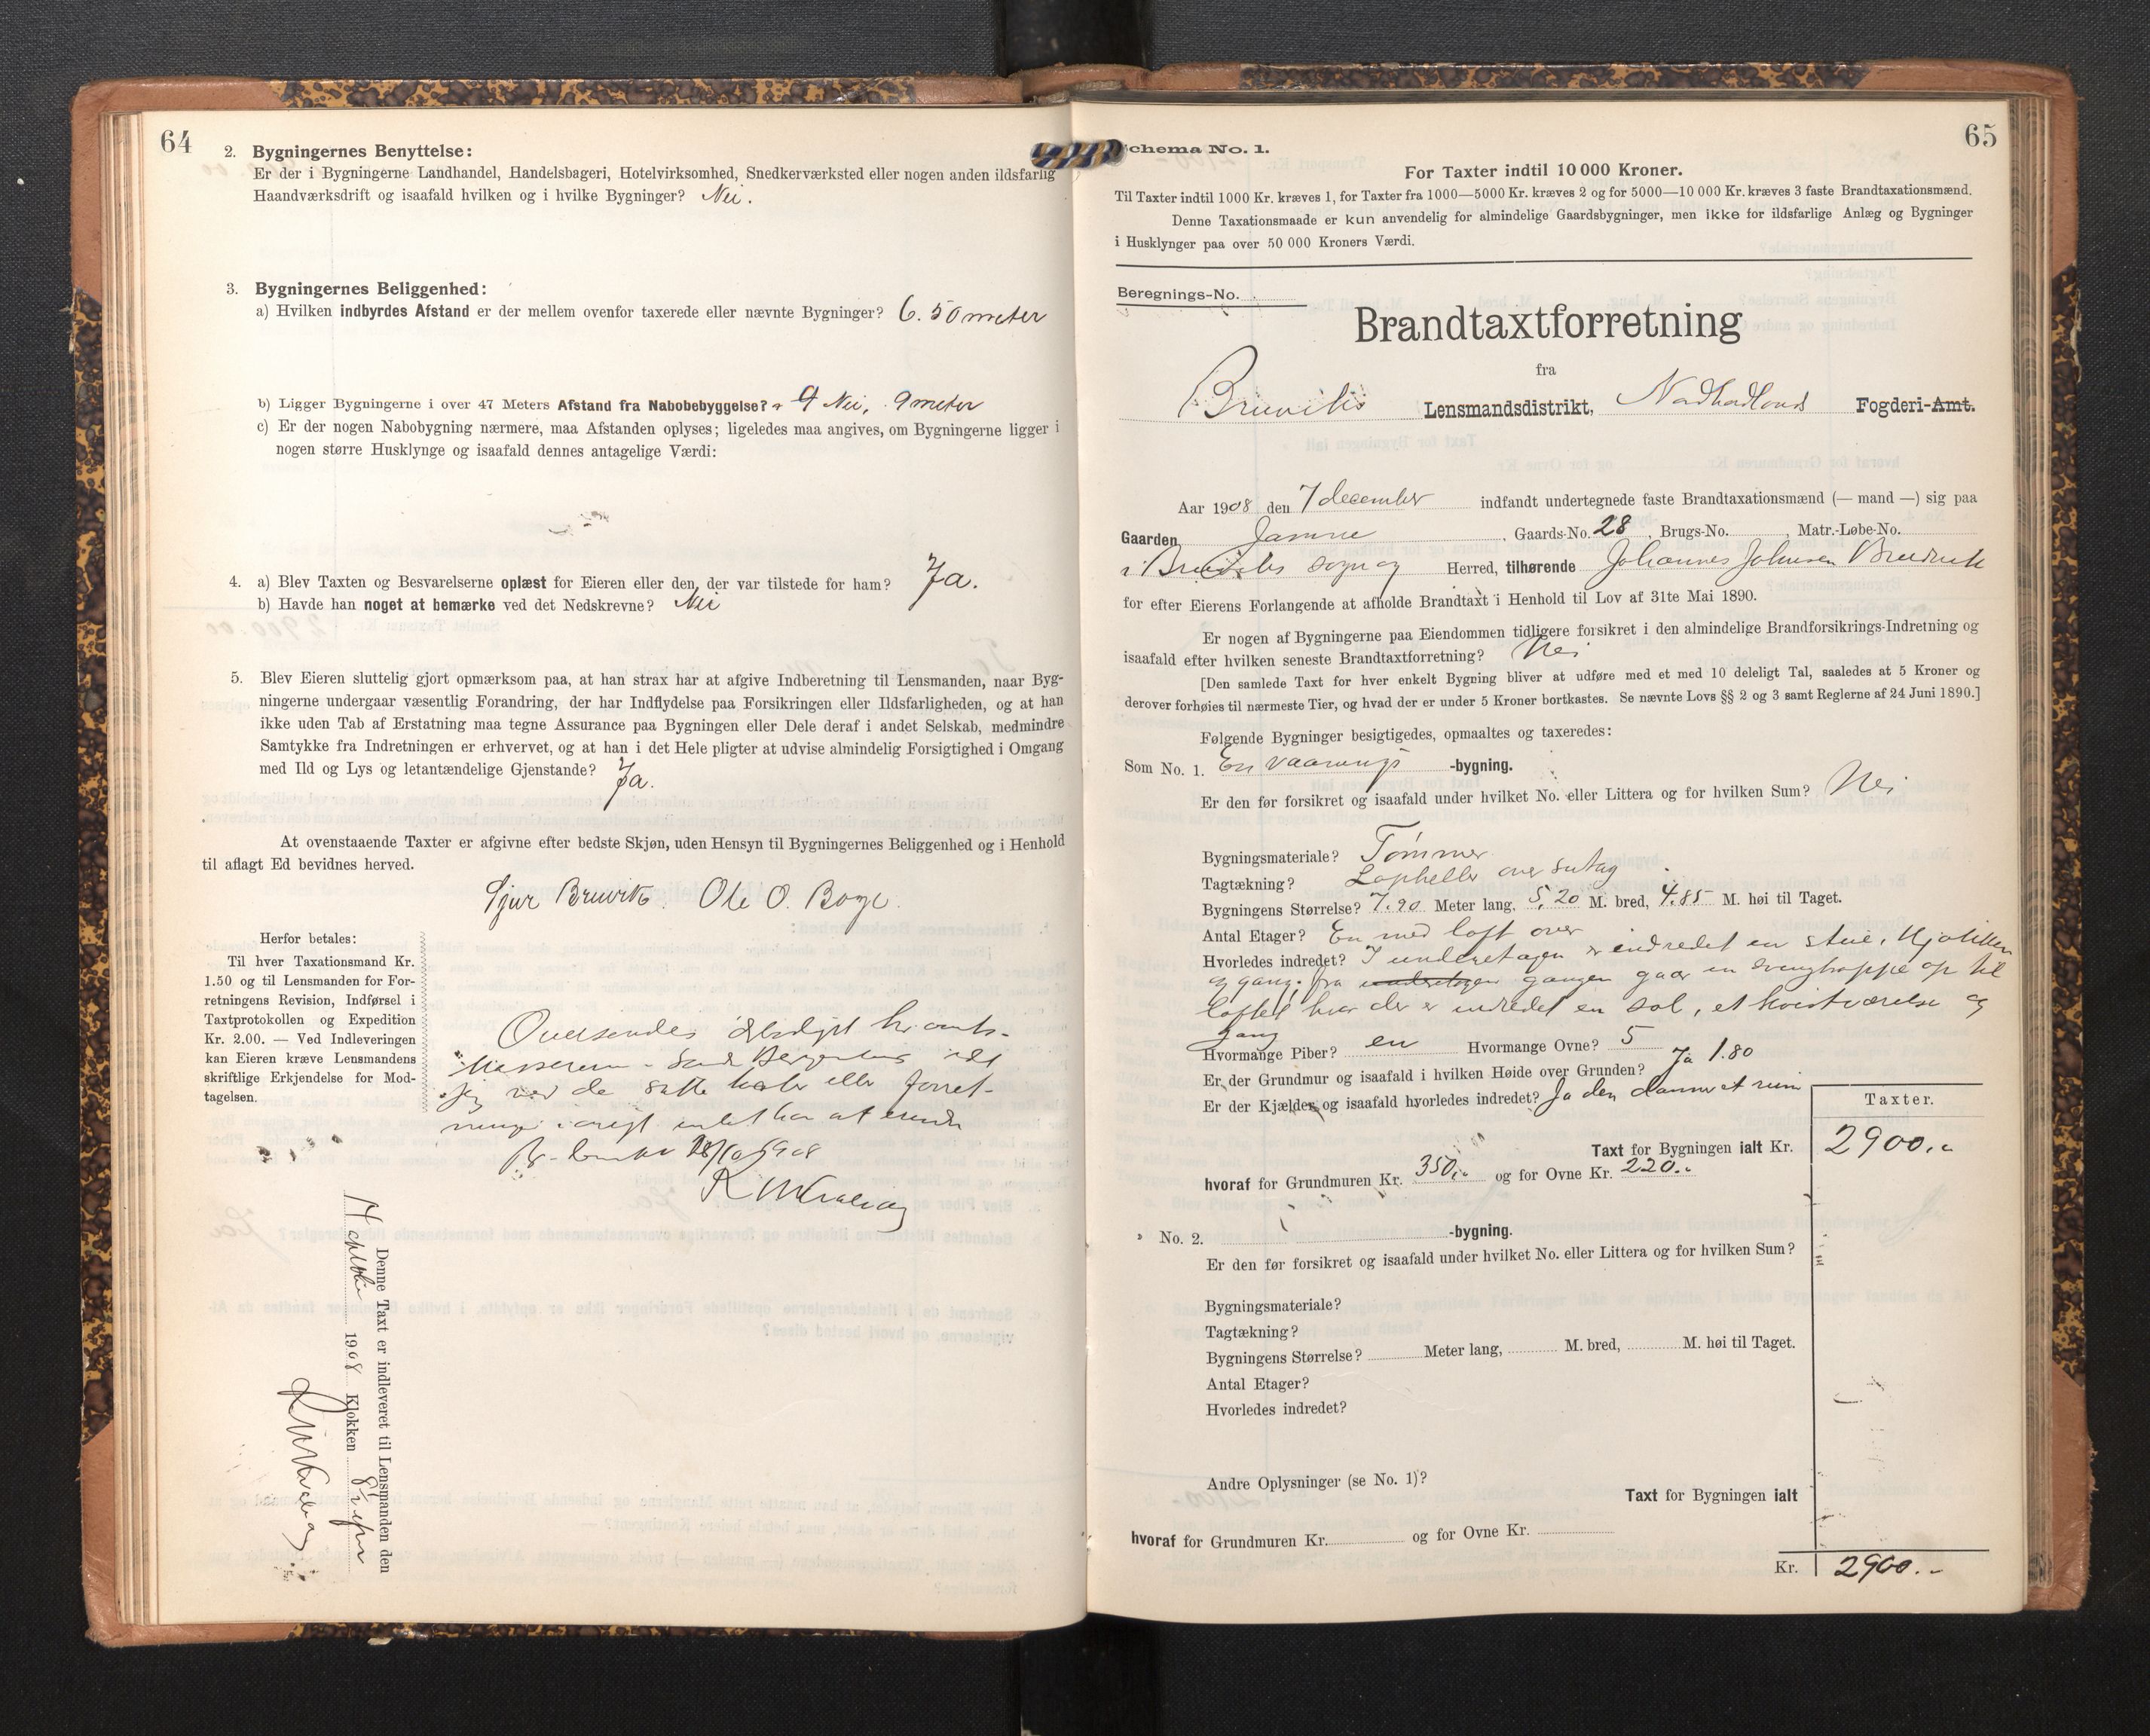 64
2. Bygningernes Benyttelse:
Er der i Bygningerne Landhandel, Handelsbageri, Hotelvirksomhed, Snedkerværksted eller nogen anden ildsfarlig
Haandværksdrift og isaafald hvilken og i hvilke Bygninger? Nei.
3. Bygningernes Beliggenhed:
a) Hvilken indbyrdes Afstand er der mellem ovenfor taxerede eller nævnte Bygninger? 6.50 meter
b) Ligger Bygningerne i over 47 Meters Afstand fra Nabobebyggelse? Nei, 9 meter
c) Er der nogen Nabobygning nærmere, maa Afstanden oplyses; ligeledes maa angives, om Bygningerne ligger i
nogen større Husklynge og isaafald dennes antagelige Værdi:
4. a) Blev Taxten og Besvarelserne oplæst for Eieren eller den, der var tilstede for ham? Ja.
b) Havde han noget at bemærke ved det Nedskrevne? Nei
5. Blev Eieren sluttelig gjort opmærksom paa, at han strax har at afgive Indberetning til Lensmanden, naar Byg-
ningerne undergaar væsentlig Forandring, der har Indflydelse paa Forsikringen eller Ildsfarligheden, og at han
ikke uden Tab af Erstatning maa tegne Assurance paa Bygningen eller Dele deraf i andet Selskab, medmindre
Samtykke fra Indretningen er erhvervet, og at han i det Hele pligter at udvise almindelig Forsigtighed i Omgang
med Ild og Lys og letantændelige Gjenstande? Ja.
At ovenstaaende Taxter er afgivne efter bedste Skjøn, uden Hensyn til Bygningernes Beliggenhed og i Henhold
til aflagt Ed bevidnes herved.
Sjur Bruvik. Ole O. Boge.
Herfor betales:
Til hver Taxationsmand Kr.
1.50 og til Lensmanden for For-
retningens Revision, Indførsel i
Taxtprotokollen og Expedition
Kr. 2.00. — Ved Indleveringen
kan Eieren kræve Lensmandens
skriftlige Erkjendelse for Mod-
tagelsen.
Oversendes
jeg ved de satte eller forret-
1908
Denne Taxt er indleveret til Lensmanden den
1908 Klokken 8
65
Schema No. 1.
For Taxter indtil 10 000 Kroner.
Til Taxter indtil 1000 Kr. kræves 1, for Taxter fra 1000—5000 Kr. kræves 2 og for 5000—10 000 Kr. kræves 3 faste Brandtaxationsmænd.
Denne Taxationsmaade er kun anvendelig for almindelige Gaardsbygninger, men ikke for ildsfarlige Anlæg og Bygninger
i Husklynger paa over 50 000 Kroners Værdi.
Beregnings-No.
Brandtaxtforretning
fra
Bruviks Lensmandsdistrikt, Nordhordlands Fogderi-Amt.
Aar 1908 den 7 december indfandt undertegnede faste Brandtaxationsmænd (— mand —) sig paa
Gaarden Jamne, Gaards-No. 28, Brugs-No. , Matr.-Løbe-No.
i Bruviks sogn og Herred, tilhørende Johannes Johnsen Bruvik
for efter Eierens Forlangende at afholde Brandtaxt i Henhold til Lov af 31te Mai 1890.
Er nogen af Bygningerne paa Eiendommen tidligere forsikret i den almindelige Brandforsikrings-Indretning og
isaafald efter hvilken seneste Brandtaxtforretning? Nei
[Den samlede Taxt for hver enkelt Bygning bliver at udføre med et med 10 deleligt Tal, saaledes at 5 Kroner og
derover forhøies til nærmeste Tier, og hvad der er under 5 Kroner bortkastes. Se nævnte Lovs §§ 2 og 3 samt Reglerne af 24 Juni 1890.]
Følgende Bygninger besigtigedes, opmaaltes og taxeredes:
Som No. 1. En vaanings-bygning.
Er den før forsikret og isaafald under hvilket No. eller Littera og for hvilken Sum? Nei
Bygningsmateriale? Tømmer
Tagtækning? Lapheller over sutag
Bygningens Størrelse? 7.90 Meter lang, 5,20 M. bred, 4.85 M. høi til Taget.
Antal Etager? En med loft over
Hvorledes indredet? I underetagen er indredet en stue, kjøkken
og gang; fra underetagen gangen gaar en svingtrappe op til
loftet hvor der er indredet en sal, et kvistværelse og
gang
Hvormange Piber? en Hvormange Ovne? 5
Er der Grundmur og isaafald i hvilken Høide over Grunden? Ja 1.80
Er der Kjælder og isaafald hvorledes indredet? Ja den danner et rum
Taxter.
Taxt for Bygningen ialt Kr. 2900.-
hvoraf for Grundmuren Kr. 350,- og for Ovne Kr. 220.-
No. 2. -bygning.
Er den før forsikret og isaafald under hvilket No. eller Littera og for hvilken Sum?
Bygningsmateriale?
Tagtækning?
Bygningens Størrelse? Meter lang, M. bred, M. høi til Taget.
Antal Etager?
Hvorledes indredet?
Andre Oplysninger (se No. 1)?
Taxt for Bygningen ialt
hvoraf for Grundmuren Kr. og for Ovne Kr.
Kr. 2900.-